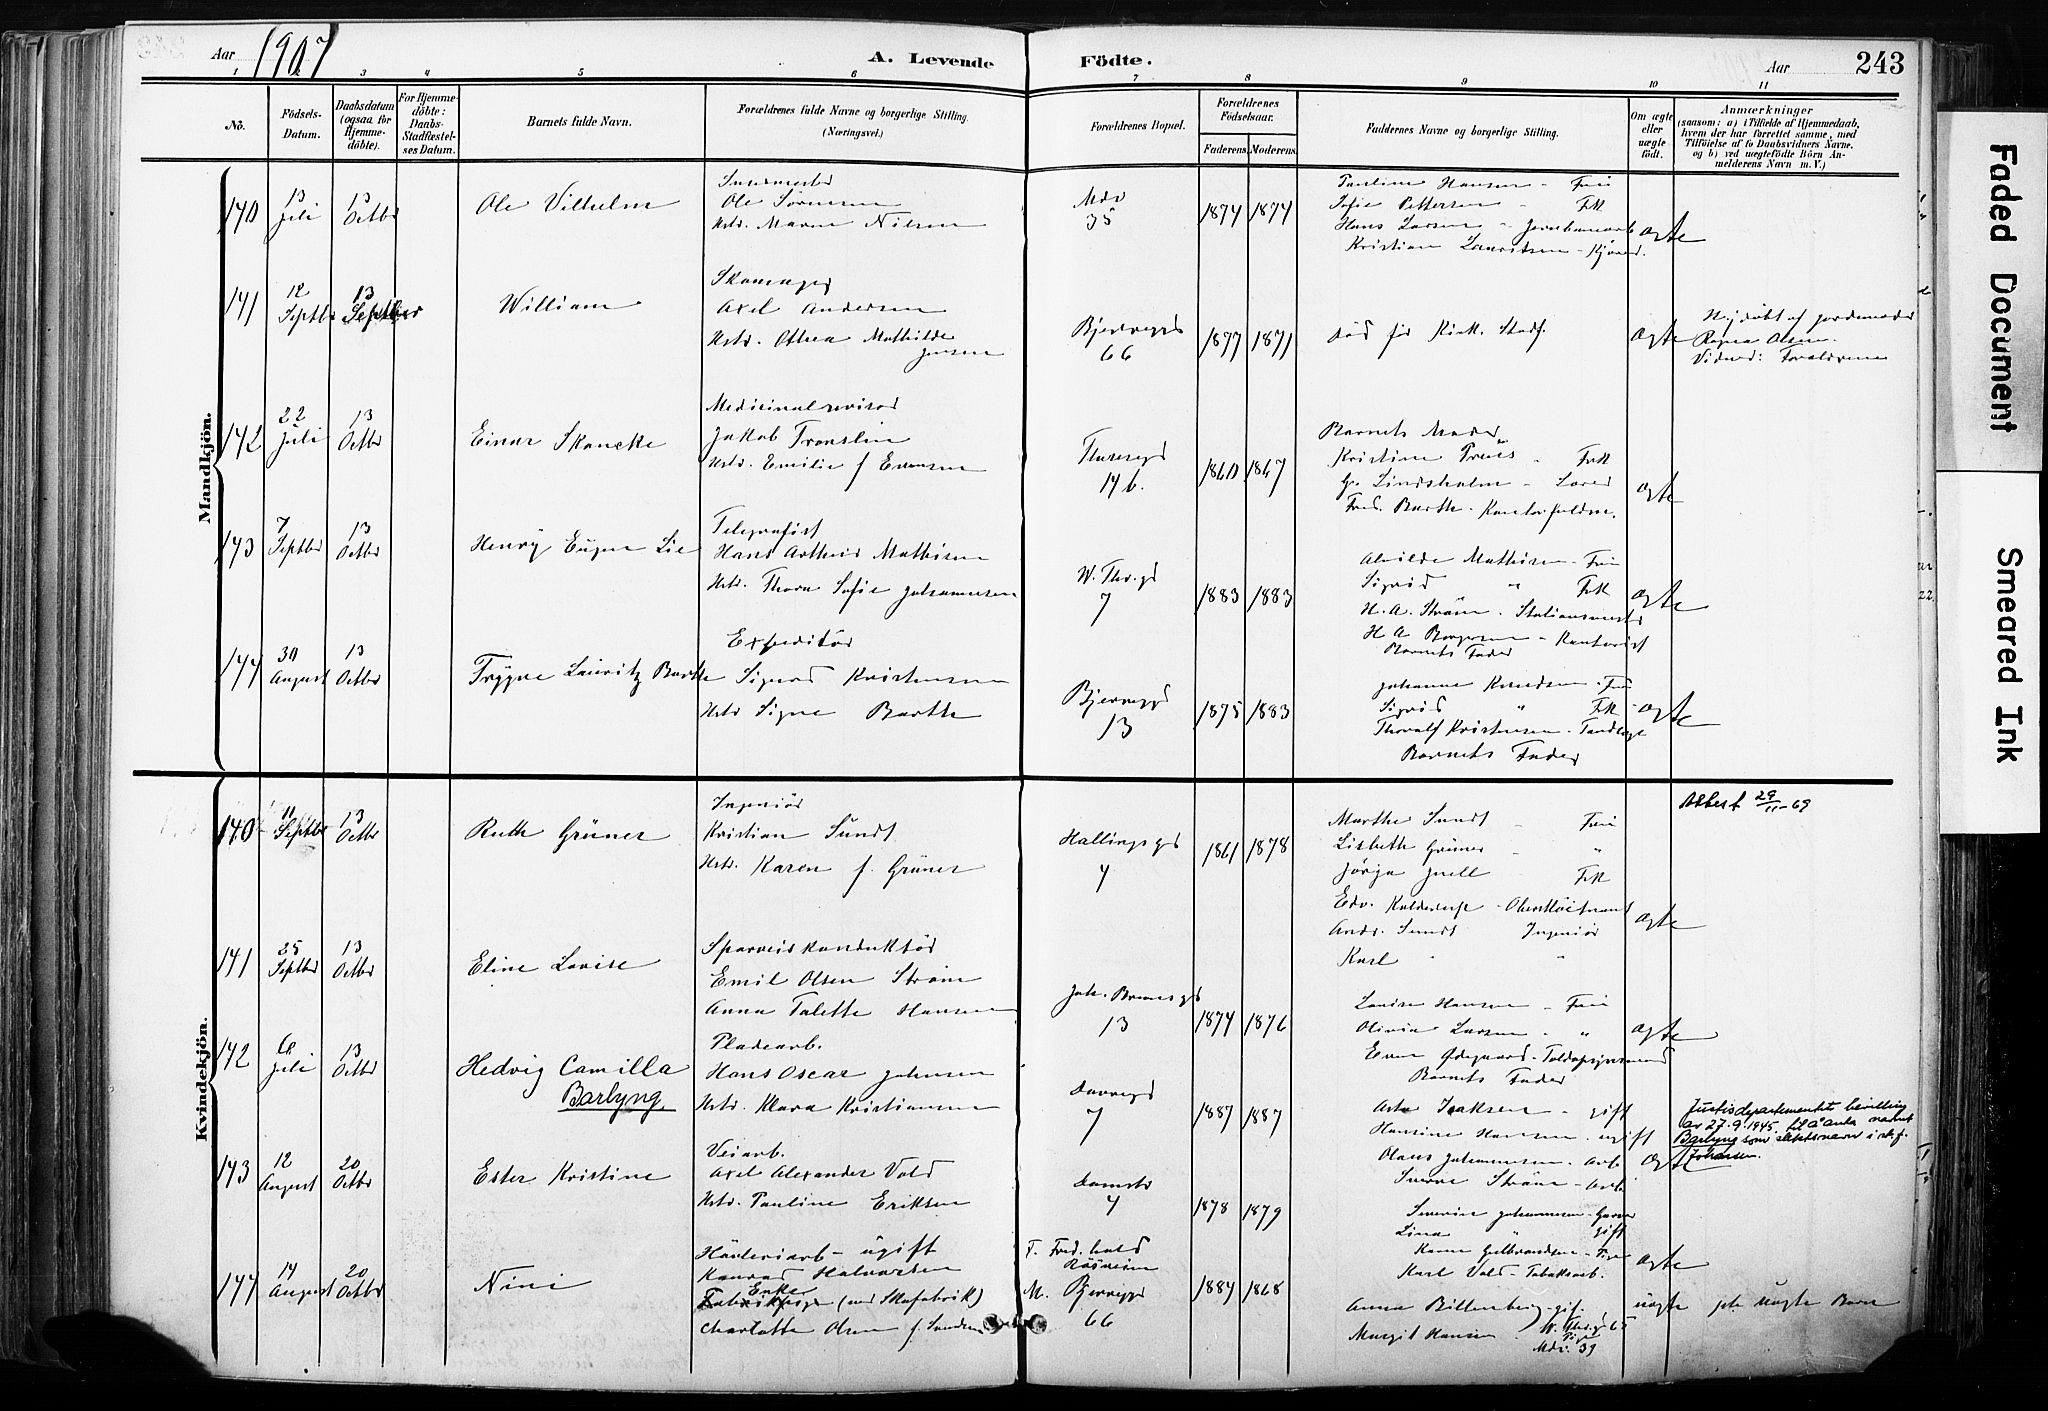 Aar 1907
A. Levende
Födte.
Aar
243
1 2 3 4 5 6 7 8 9 10 11
No.
Födsels-Datum.
Daabsdatum (ogsaa for Hjemme-döbte).
For Hjemme-döbte: Daabs-Stadfæstel-ses Datum.
Barnets fulde Navn.
Forældrenes fulde Navne og borgerlige Stilling. (Næringsvei.)
Forældrenes Bopæl.
Forældrenes Födselsaar.
Faderens. Moderens.
Faddernes Navne og borgerlige Stilling.
Om ægte eller uægte födt.
Anmærkninger
(saasom: a) i Tilfælde af Hjemmedaab, hvem der har forrettet samme, med Tilföielse af to Daabsvidners Navne, og b) ved uægtefödte Börn An-melderens Navn m. V.)
Mandkjön.
140
13 Juli
13 Octbr
Ole Vilhelm
Ole Sörensen
Hstr. Maren Nilsen
35
1874 1874
Pauline Hansen - Frue
Sofie Pettersen - Frk
Hans Larsen - Jernbanearb
Kristian Lauritsen - Kjörer.
ægte
141
12 Septbr
13 Septber
William
Skomager
Axel Andersen
Hstr. Othea Mathilde Jensen
Bjerregd
66
1877 1871
Död før Kirk. Stadf.
ægte
Hj. döbt af Jordemoder
Ragna Olsen.
Vidner: Forældrene
142
22 Juli
13 Octbr
Einar Skancke
Medicinalrevisor
Jakob Tronslin
Hstr. Emilie f Evensen
Theresegd
14 b.
1860 1867
Barnets Moder
Kristine Preus - Frk
G. Lindholm - Lærer
Fred. Barth - Kontorfuldm.
ægte
143
7 Septbr
13 Octbr
Henry Eugen Lie
Telegrafist
Hans Arthur Mathisen
Hstr. Thora Sofie Johannesen
W. Thr.gd
7
1883 1883
Alvilde Mathisen - Frue
Sigrid " Frk
H. A. Ström - Stationsmester
H A Borgersen - Kontorist
Barnets Fader
ægte
144
30 August
13 Octbr
Trygve Lauritz Barth
Expeditör
Sigurd Kristensen
Hstr Signe Barth
Bjerregd
13
1875 1883
Johanne Knudsen - Frue
Sigrid " Frk
Thoralf Kristensen - Tandlæge
Barnets Fader
ægte
Kvindekjön.
140
11 Septbr
13 Octbr
Ruth Grüner
Ingeniör
Kristian Sundt
Hstr. Karen f. Grüner
Hallingsgd
4
1861 1878
Marthe Sundt - Frue
Lisbeth Grüner - "
Jörga Juell Frk
Edv. Kolderup - Oberstlöitnant
Andr. Sundt Ingeniör
Karl " "
ægte
Attest 29/11-69
141
25 Septbr
13 Octbr
Eline Lovise
Sporveiskonduktör
Emil Olsen Ström
Anna Talette Hansen
Joh. Brunsgd
13
1874 1876
Lovise Hansen - Frue
Olivia Larsen - "
Even Ödegaard - Toldopsynsmand
Barnets Fader
ægte
142
6 Juli
13 Octbr
Hedvig Camilla
Barlyng.
Pladearb.
Hans Oscar Johnsen
Hstr. Klara Kristiansen
Darregd
7
1887 1887
Asta Isaksen - gift
Hansine Hansen - ugift
Olaus Johannesen - Arb
Sverre Ström - Arb
ægte
Justisdepartementet bevilling
av 27.9.1945 til å anta navnet
Barlyng som slektsnavn i st. f.
Johansen.
143
12 August
20 Octbr
Ester Kristine
Veiarb.
Axel Alexander Vold
Hstr. Pauline Eriksen
Damstr
4
1878 1879
Severin Johannesen - Garver
Lina " gift
Karen Gulbrandsen - Pige
Karl Vold - Tobaksarb.
ægte
144
14 August
20 Octbr
Nini
Hövleriarb - ugift
Konrad Halvorsen
Enke
Fabrikpige (ved Skofabrik)
Charlotte Olsen f. Svendsen
F. Fred.
M. Bjerregd
66
1884 1868
Anna Billenberg - gif.
Margit Hansen - Pige
W. Thr.gd 65
Mdv. 39
uægte
ptr uægte Barn
Faded Document
Smeared Ink